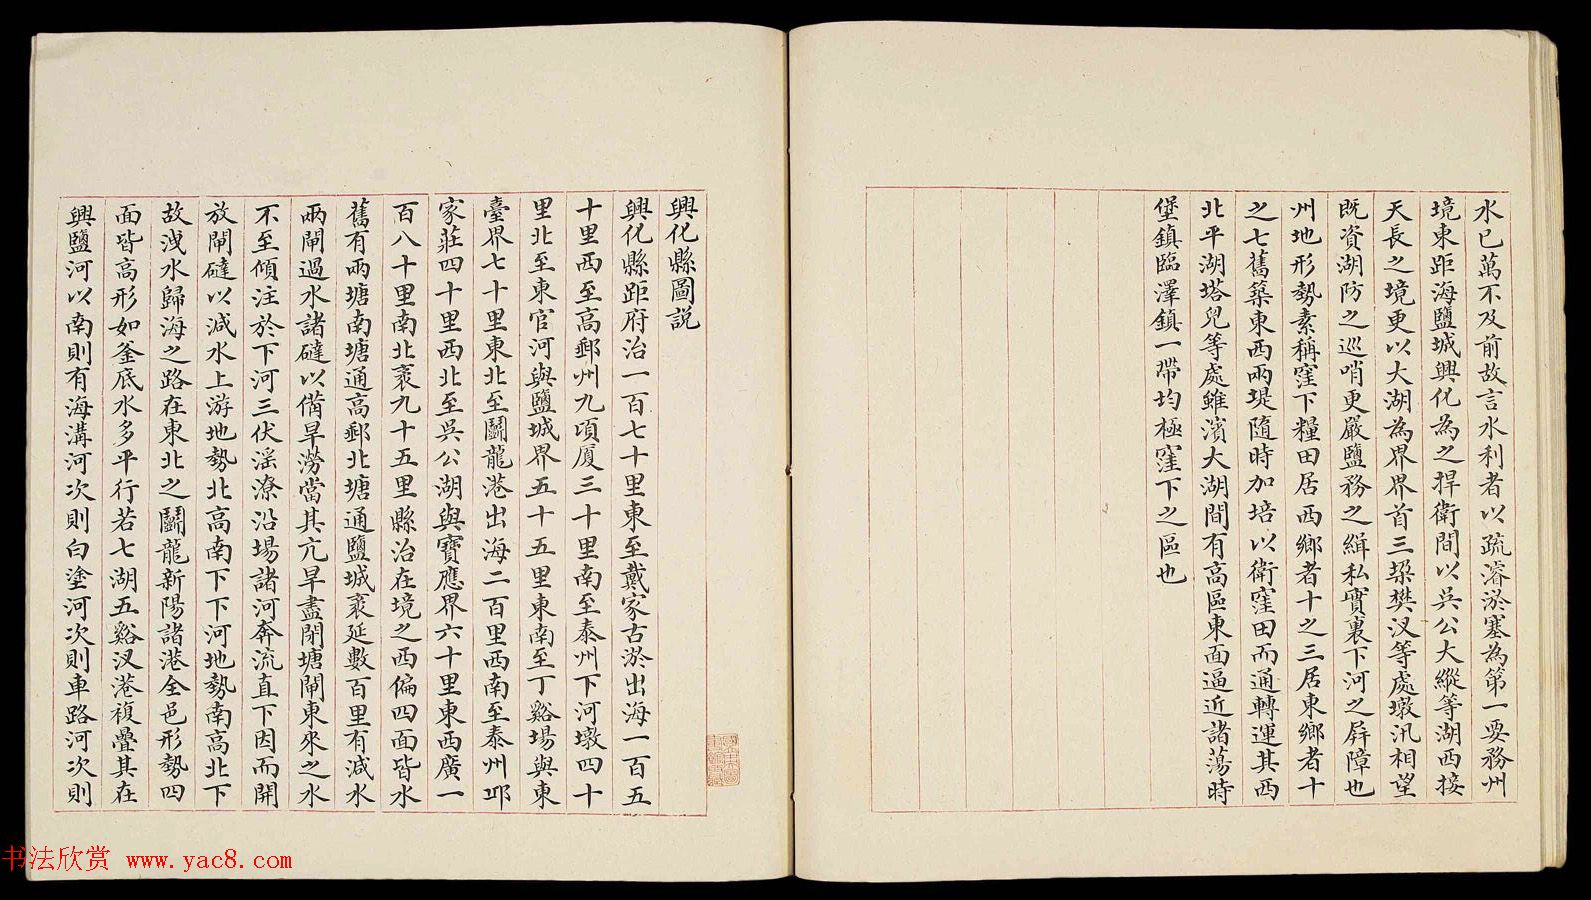 水已萬不及前故言水利者以疏濬淤塞為第一要務州
境東距海鹽城興化為之捍衛間以吳公大縱等湖西接
天長之境更以大湖為界界首三垜樊汊等處墩汛相望
既資湖防之巡哨更嚴鹽務之緝私實裏下河之屏障也
州地形勢素稱窪下糧田居西鄉者十之三居東鄉者十
之七舊築東西兩堤隨時加培以衛窪田而通轉運其西
北平湖塔兒等處雖濱大湖間有高區東面逼近諸蕩時
堡鎮臨澤鎮一帶均極窪下之區也
興化縣圖説
興化縣距府治一百七十里東至戴家古淤出海一百五
十里西至高郵州九頃厦三十里南至泰州下河墩四十
里北至東官河與鹽城界五十五里東南至丁谿場與東
臺界七十里東北至鬬龍港出海二百里西南至泰州邛
家莊四十里西北至吳公湖與寶應界六十里東西廣一
百八十里南北袤九十五里縣治在境之西偏四面皆水
舊有兩塘南塘通高郵北塘通鹽城袤延數百里有減水
兩閘過水諸䃮以備旱澇當其亢旱盡閉塘閘東來之水
不至傾注於下河三伏滛潦沿場諸河奔流直下因而開
放閘䃮以減水上游地勢北高南下下河地勢南高北下
故洩水歸海之路在東北之鬬龍新陽諸港全邑形勢四
面皆高形如釜底水多平行若七湖五谿汊港複疊其在
興鹽河以南則有海溝河次則白塗河次則車路河次則
书法欣赏 www.yac8.com